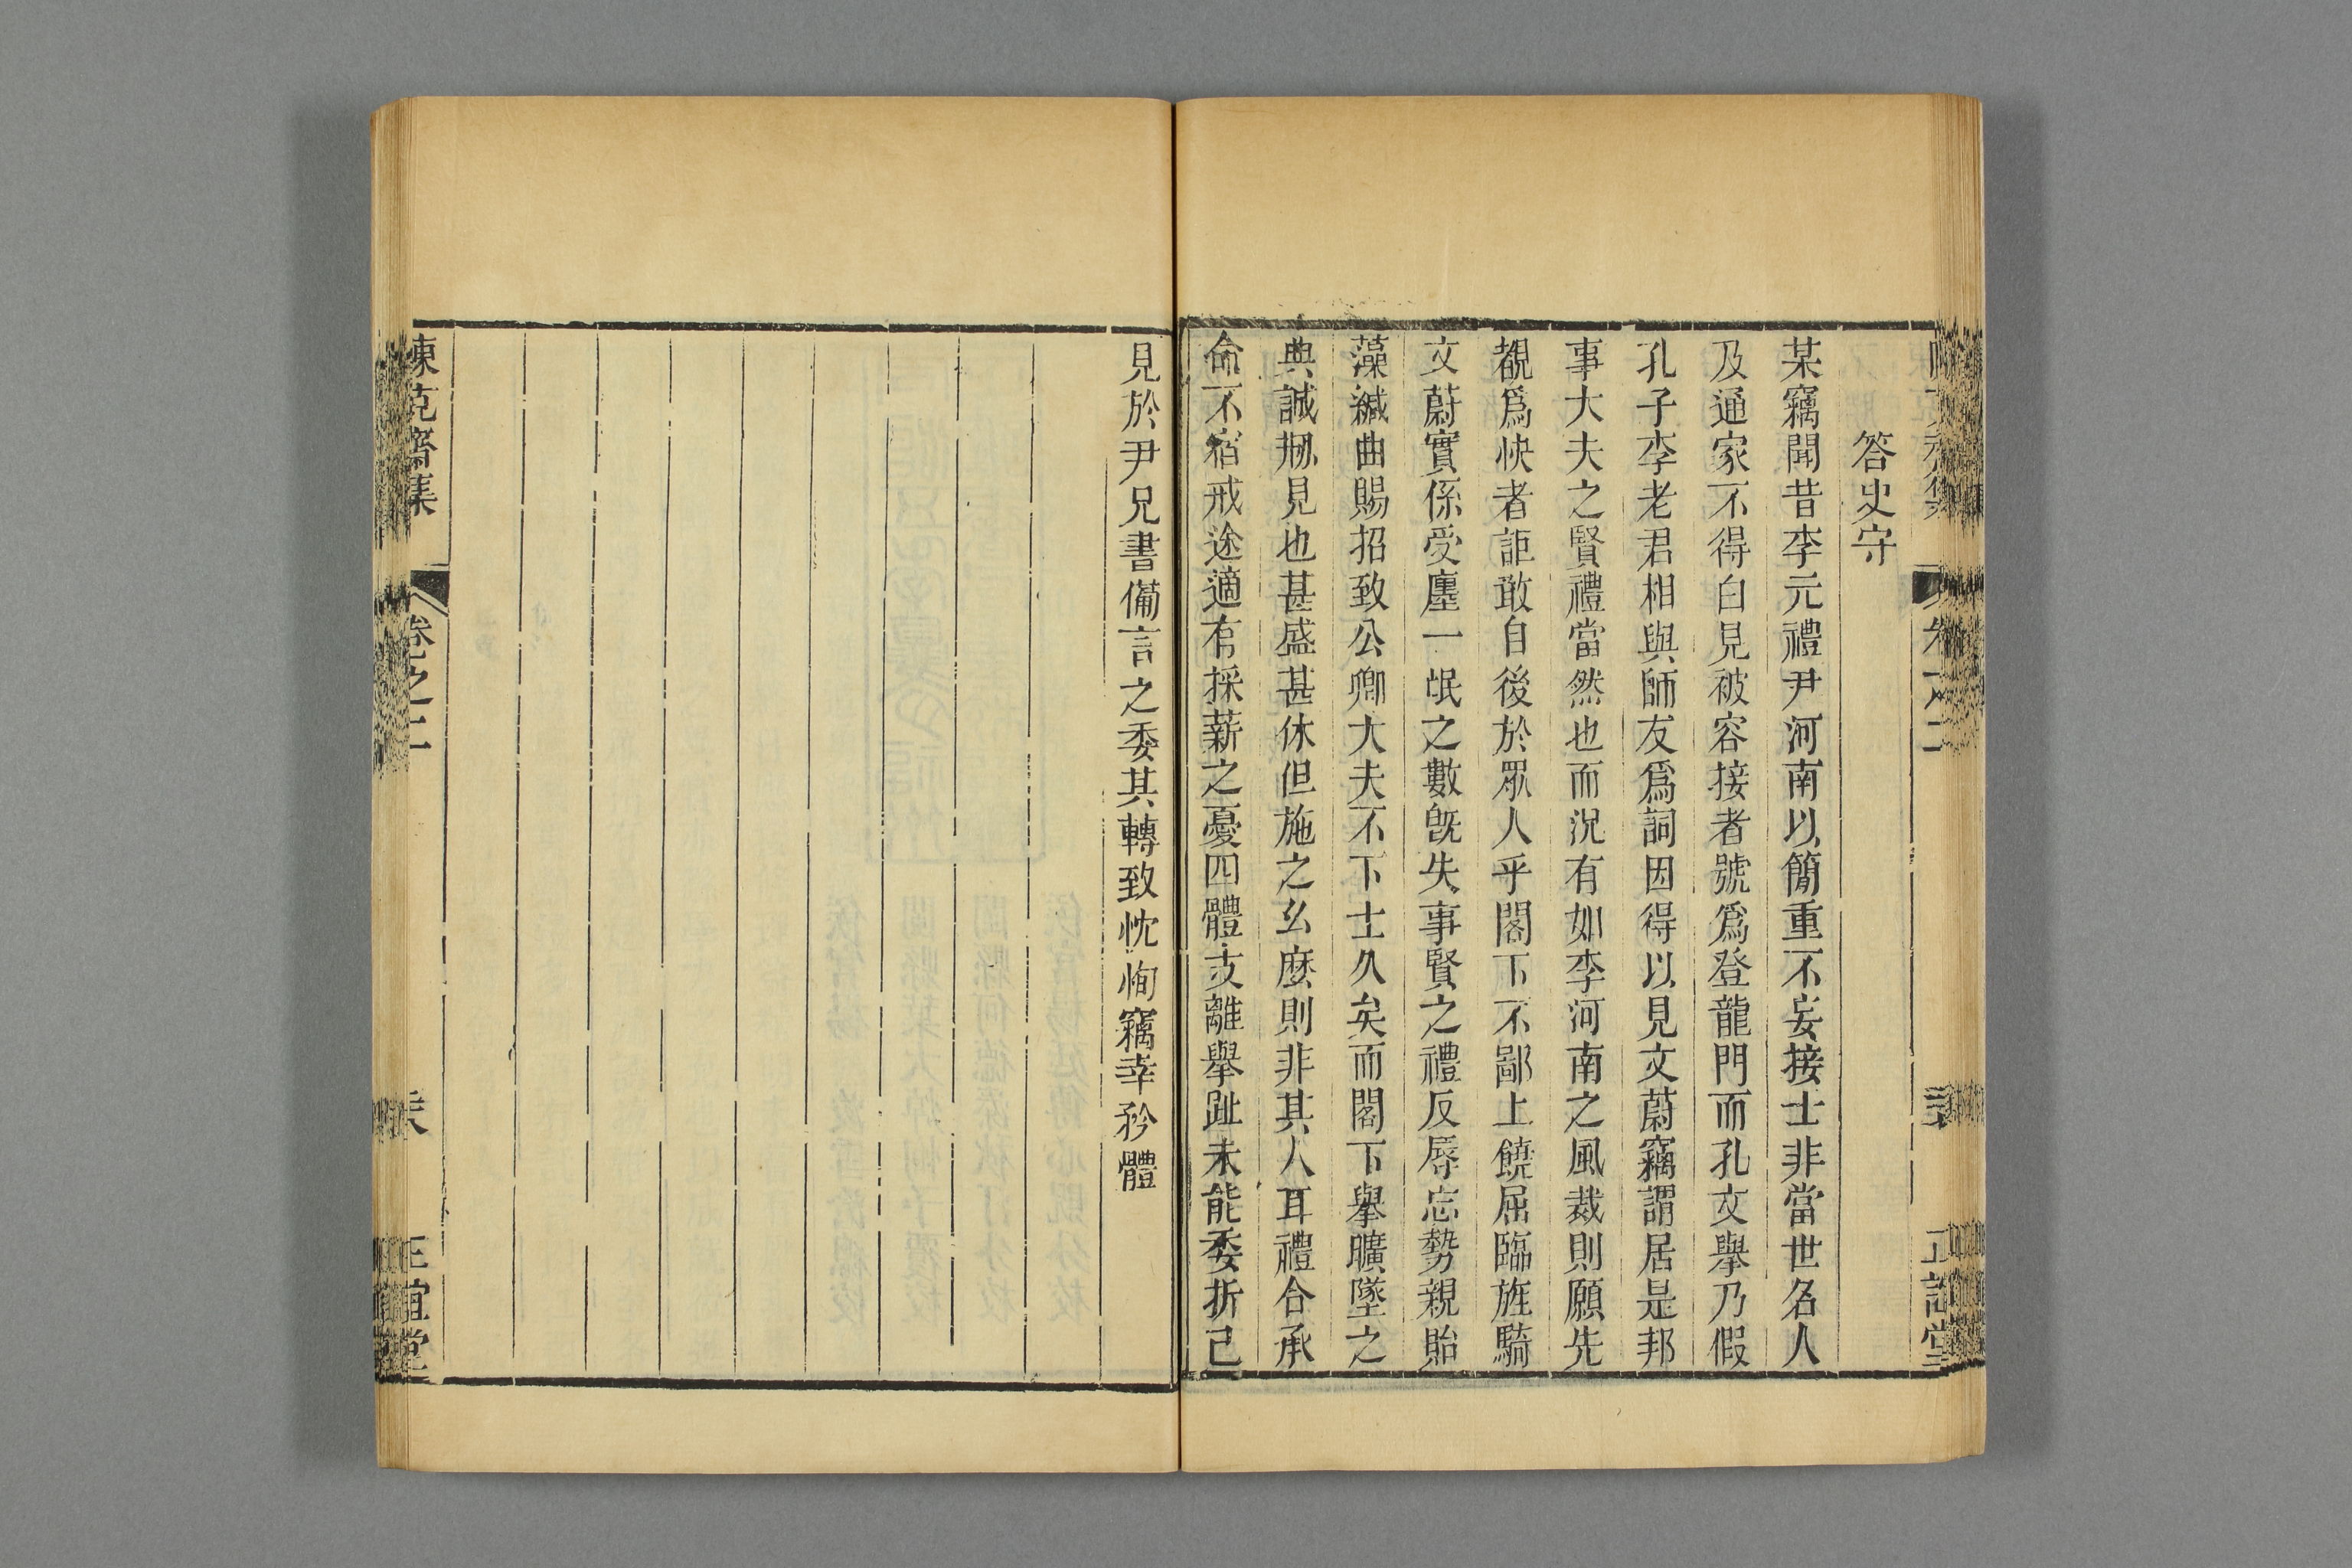 答史守
某竊聞昔李元禮尹河南以簡重不妄接士非當世名人
及通家不得白見被容接者號爲登龍門而孔文舉乃假
孔子李老君相與師友爲詞因得以見文蔚竊謂居是邦
事大夫之賢禮當然也而況有如李河南之風裁則願先
覩爲快者詎敢自後於眾人乎閣下不鄙上饒屈臨旌騎
文蔚實係受廛一氓之數旣失事賢之禮反辱忘勢親貽
藻緘曲賜招致公卿大夫不下士久矣而閣下舉曠墜之
典誠剏見也甚盛甚休但施之幺麽則非其人耳禮合承
命不宿戒途適有採薪之憂四體支離舉趾未能委折已
見於尹兄書備言之委其轉致忱恂竊幸矜體
陳克齋集
卷之二
正誼堂